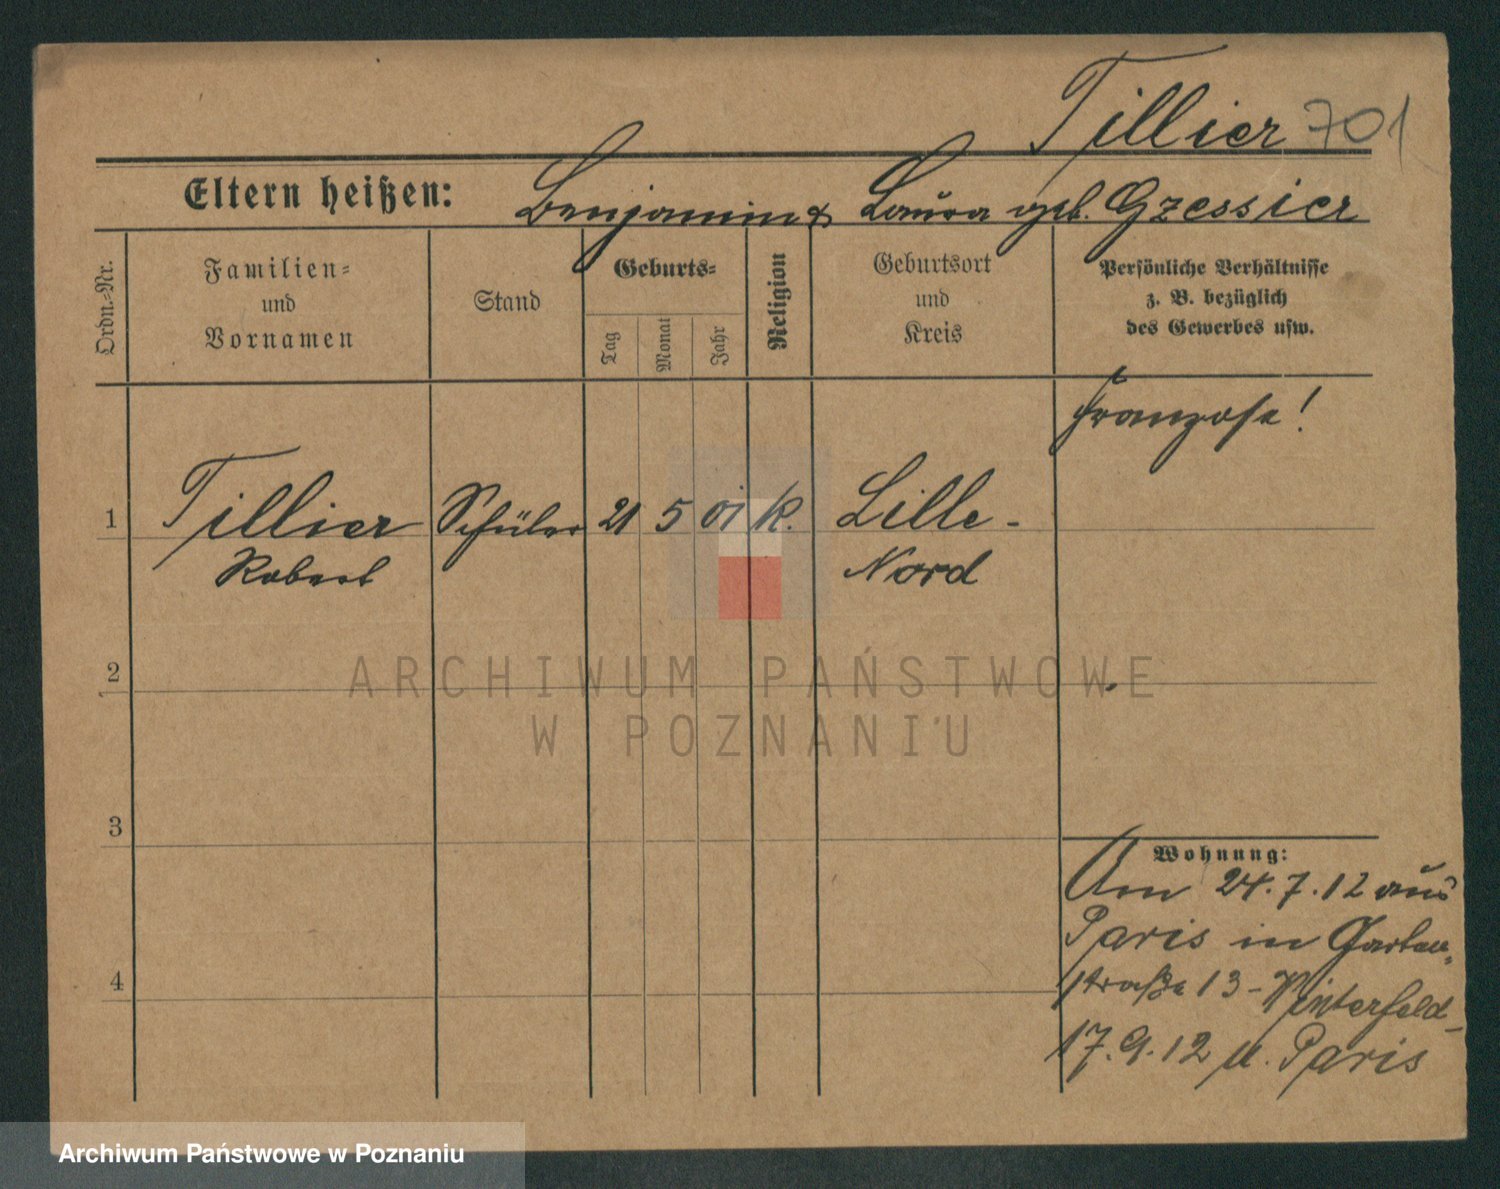 Tillier 701
Eltern heißen: Benjamin & Laura geb. Gzessier
Ordn.=Nr.
Familien=
und
Vornamen
Stand
Geburts=
Tag
Monat
Jahr
Religion
Geburtsort
und
Kreis
Persönliche Verhältnisse
z. B. bezüglich
des Gewerbes usw.
Franzose!
1 Tillier Schüler 21 5 01 k. Lille -
Robert Nord
2
ARCHIWUM PAŃSTWOWE
W POZNANIU
3
Wohnung:
Am 24.7.12 aus
Paris in Garten-
4
straße 13 - Winterfeld -
17.9.12 n. Paris
Archiwum Państwowe w Poznaniu